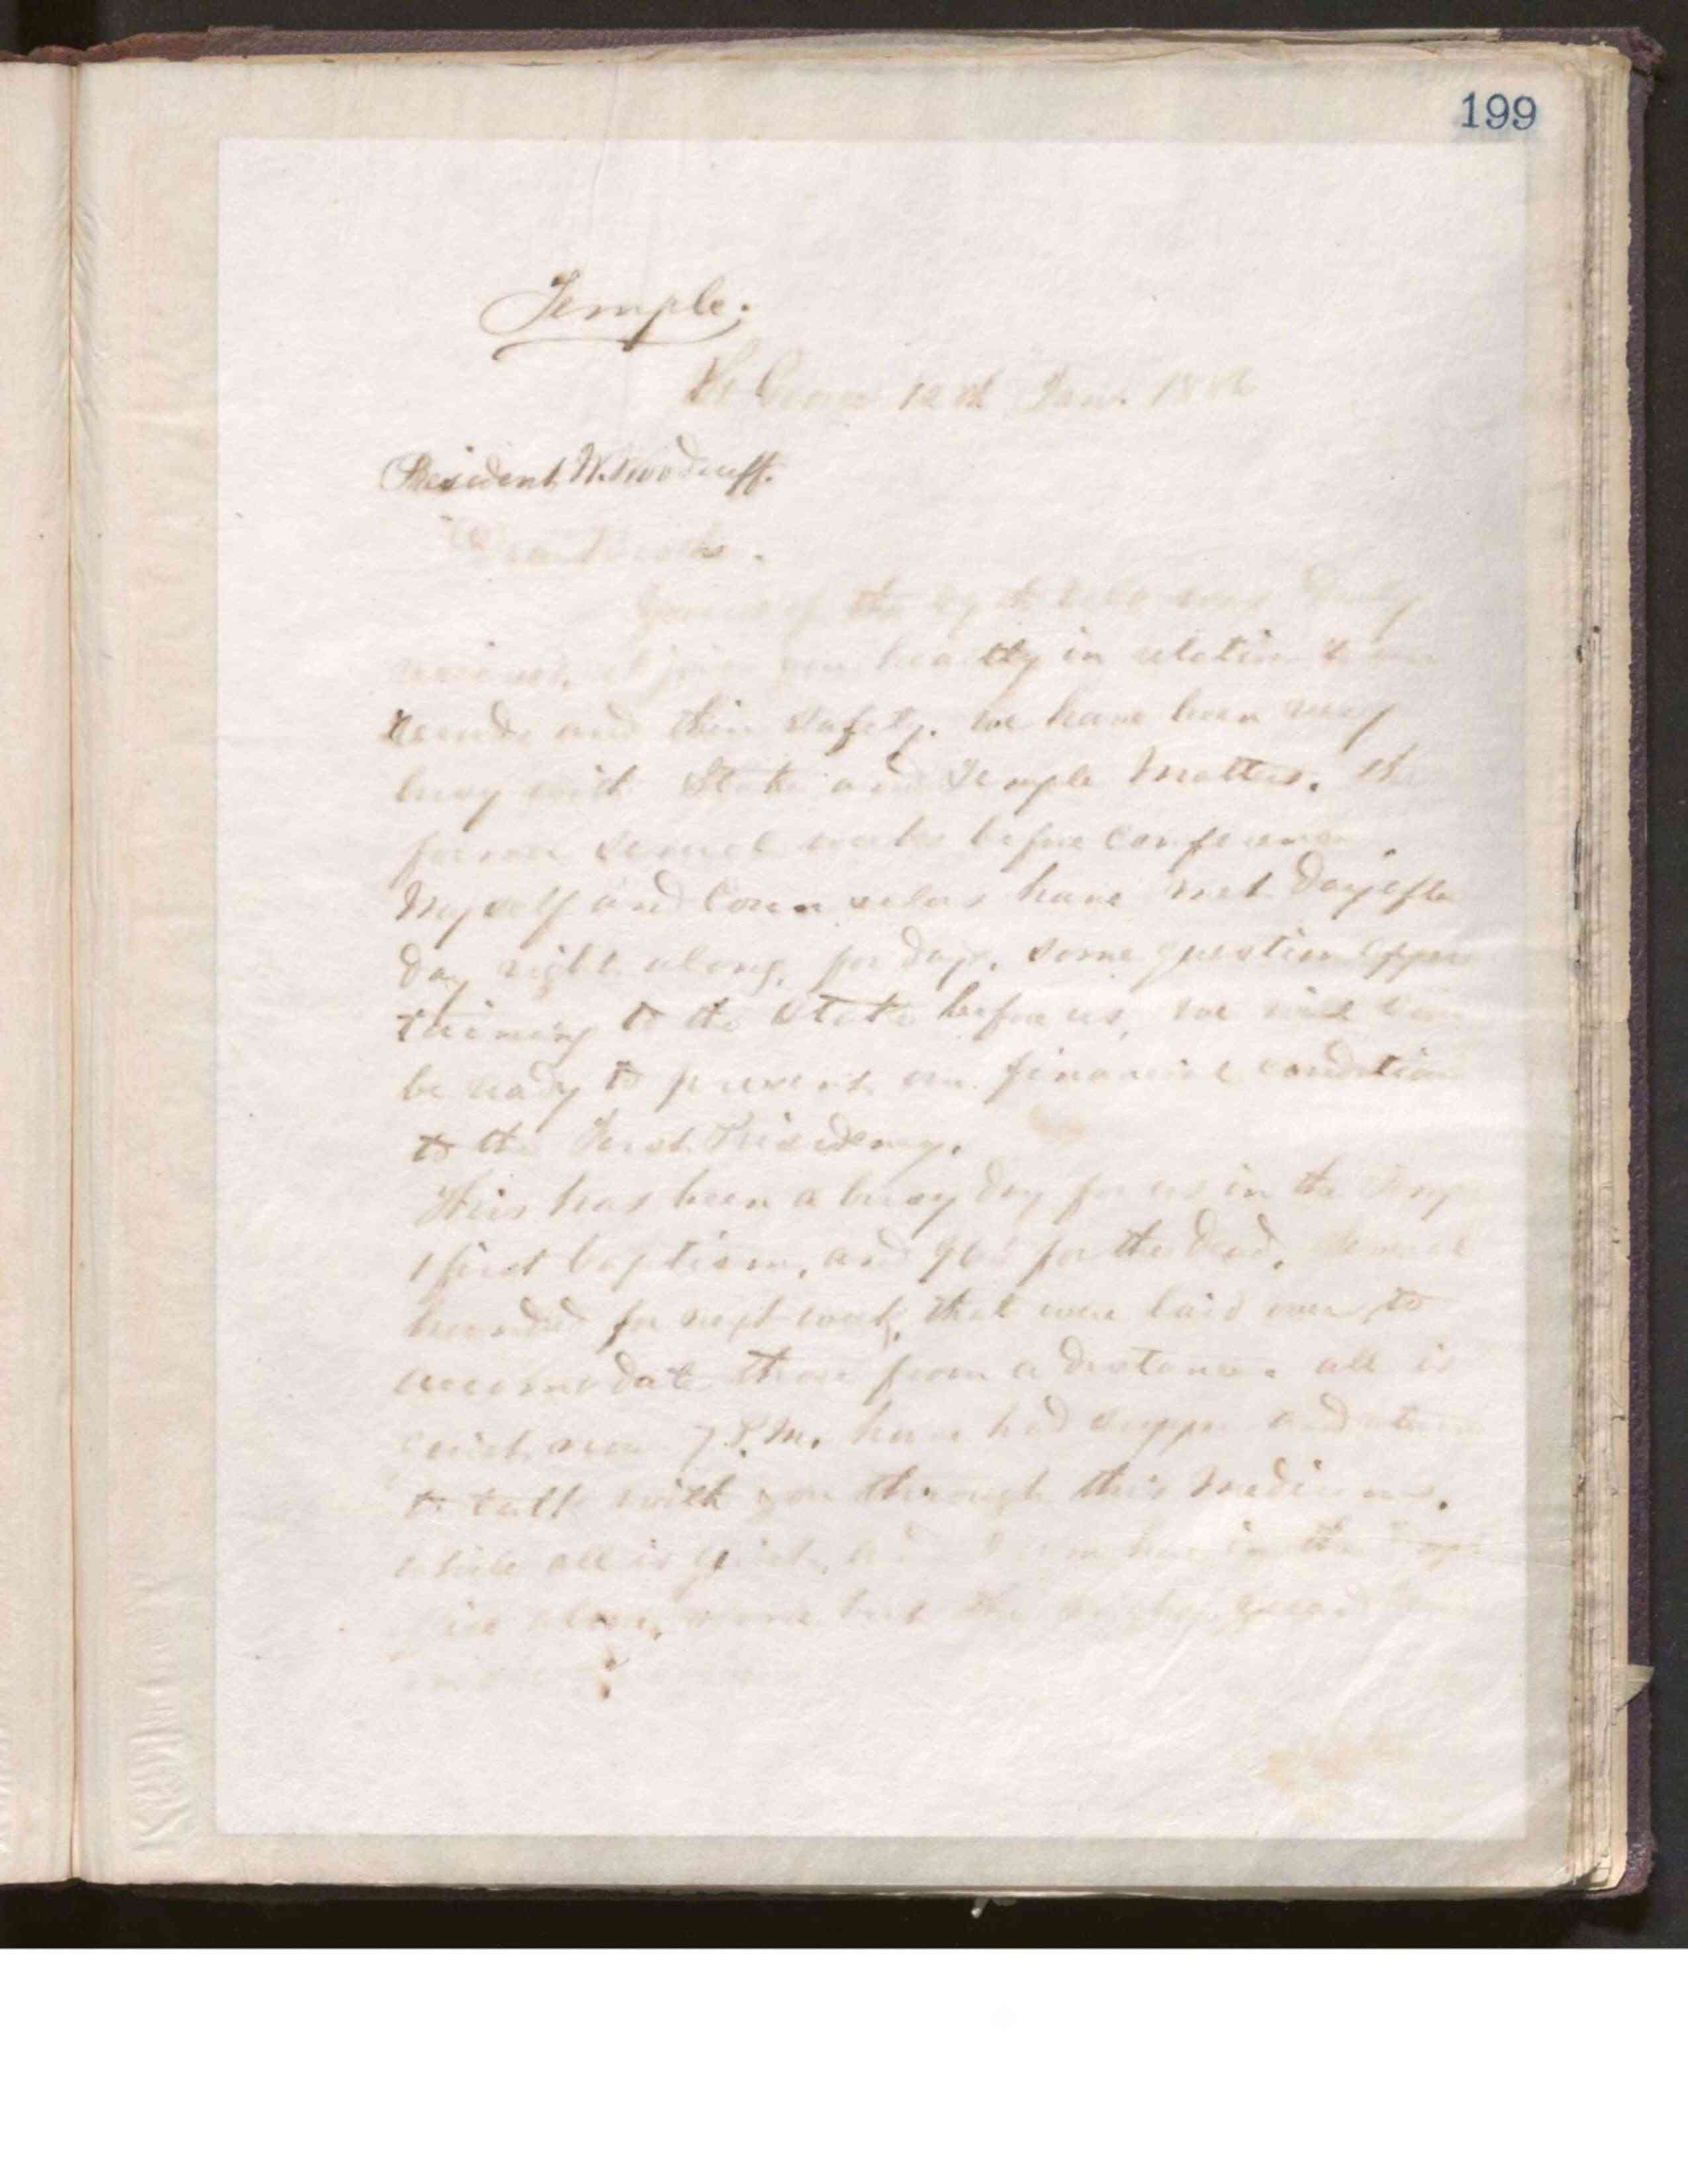 199
Temple.
St George 12th Jan. 1886
President W. Woodruff.
Dear Brother.
Yours of the ult was duly
received, I join you heartly in relation to our
records and their safety. we have been very
busy with Stake and Temple Matters. the
former several weeks before conference.
Myself and Counselors have met day after
day right along, for days, some question apper
taining to the Stake before us, we will soon
be ready to present our financial condition
to the First Presidency.
This has been a busy day for us in the Temple
1 first baptism, and for the dead, several
hundred for next week, that were laid over to
accomodate those from a distance. all is
quiet now 7 P.M. have had supper and
to talk with you through this medium.
while all is quiet, and I am here in the
alone, none but the guard